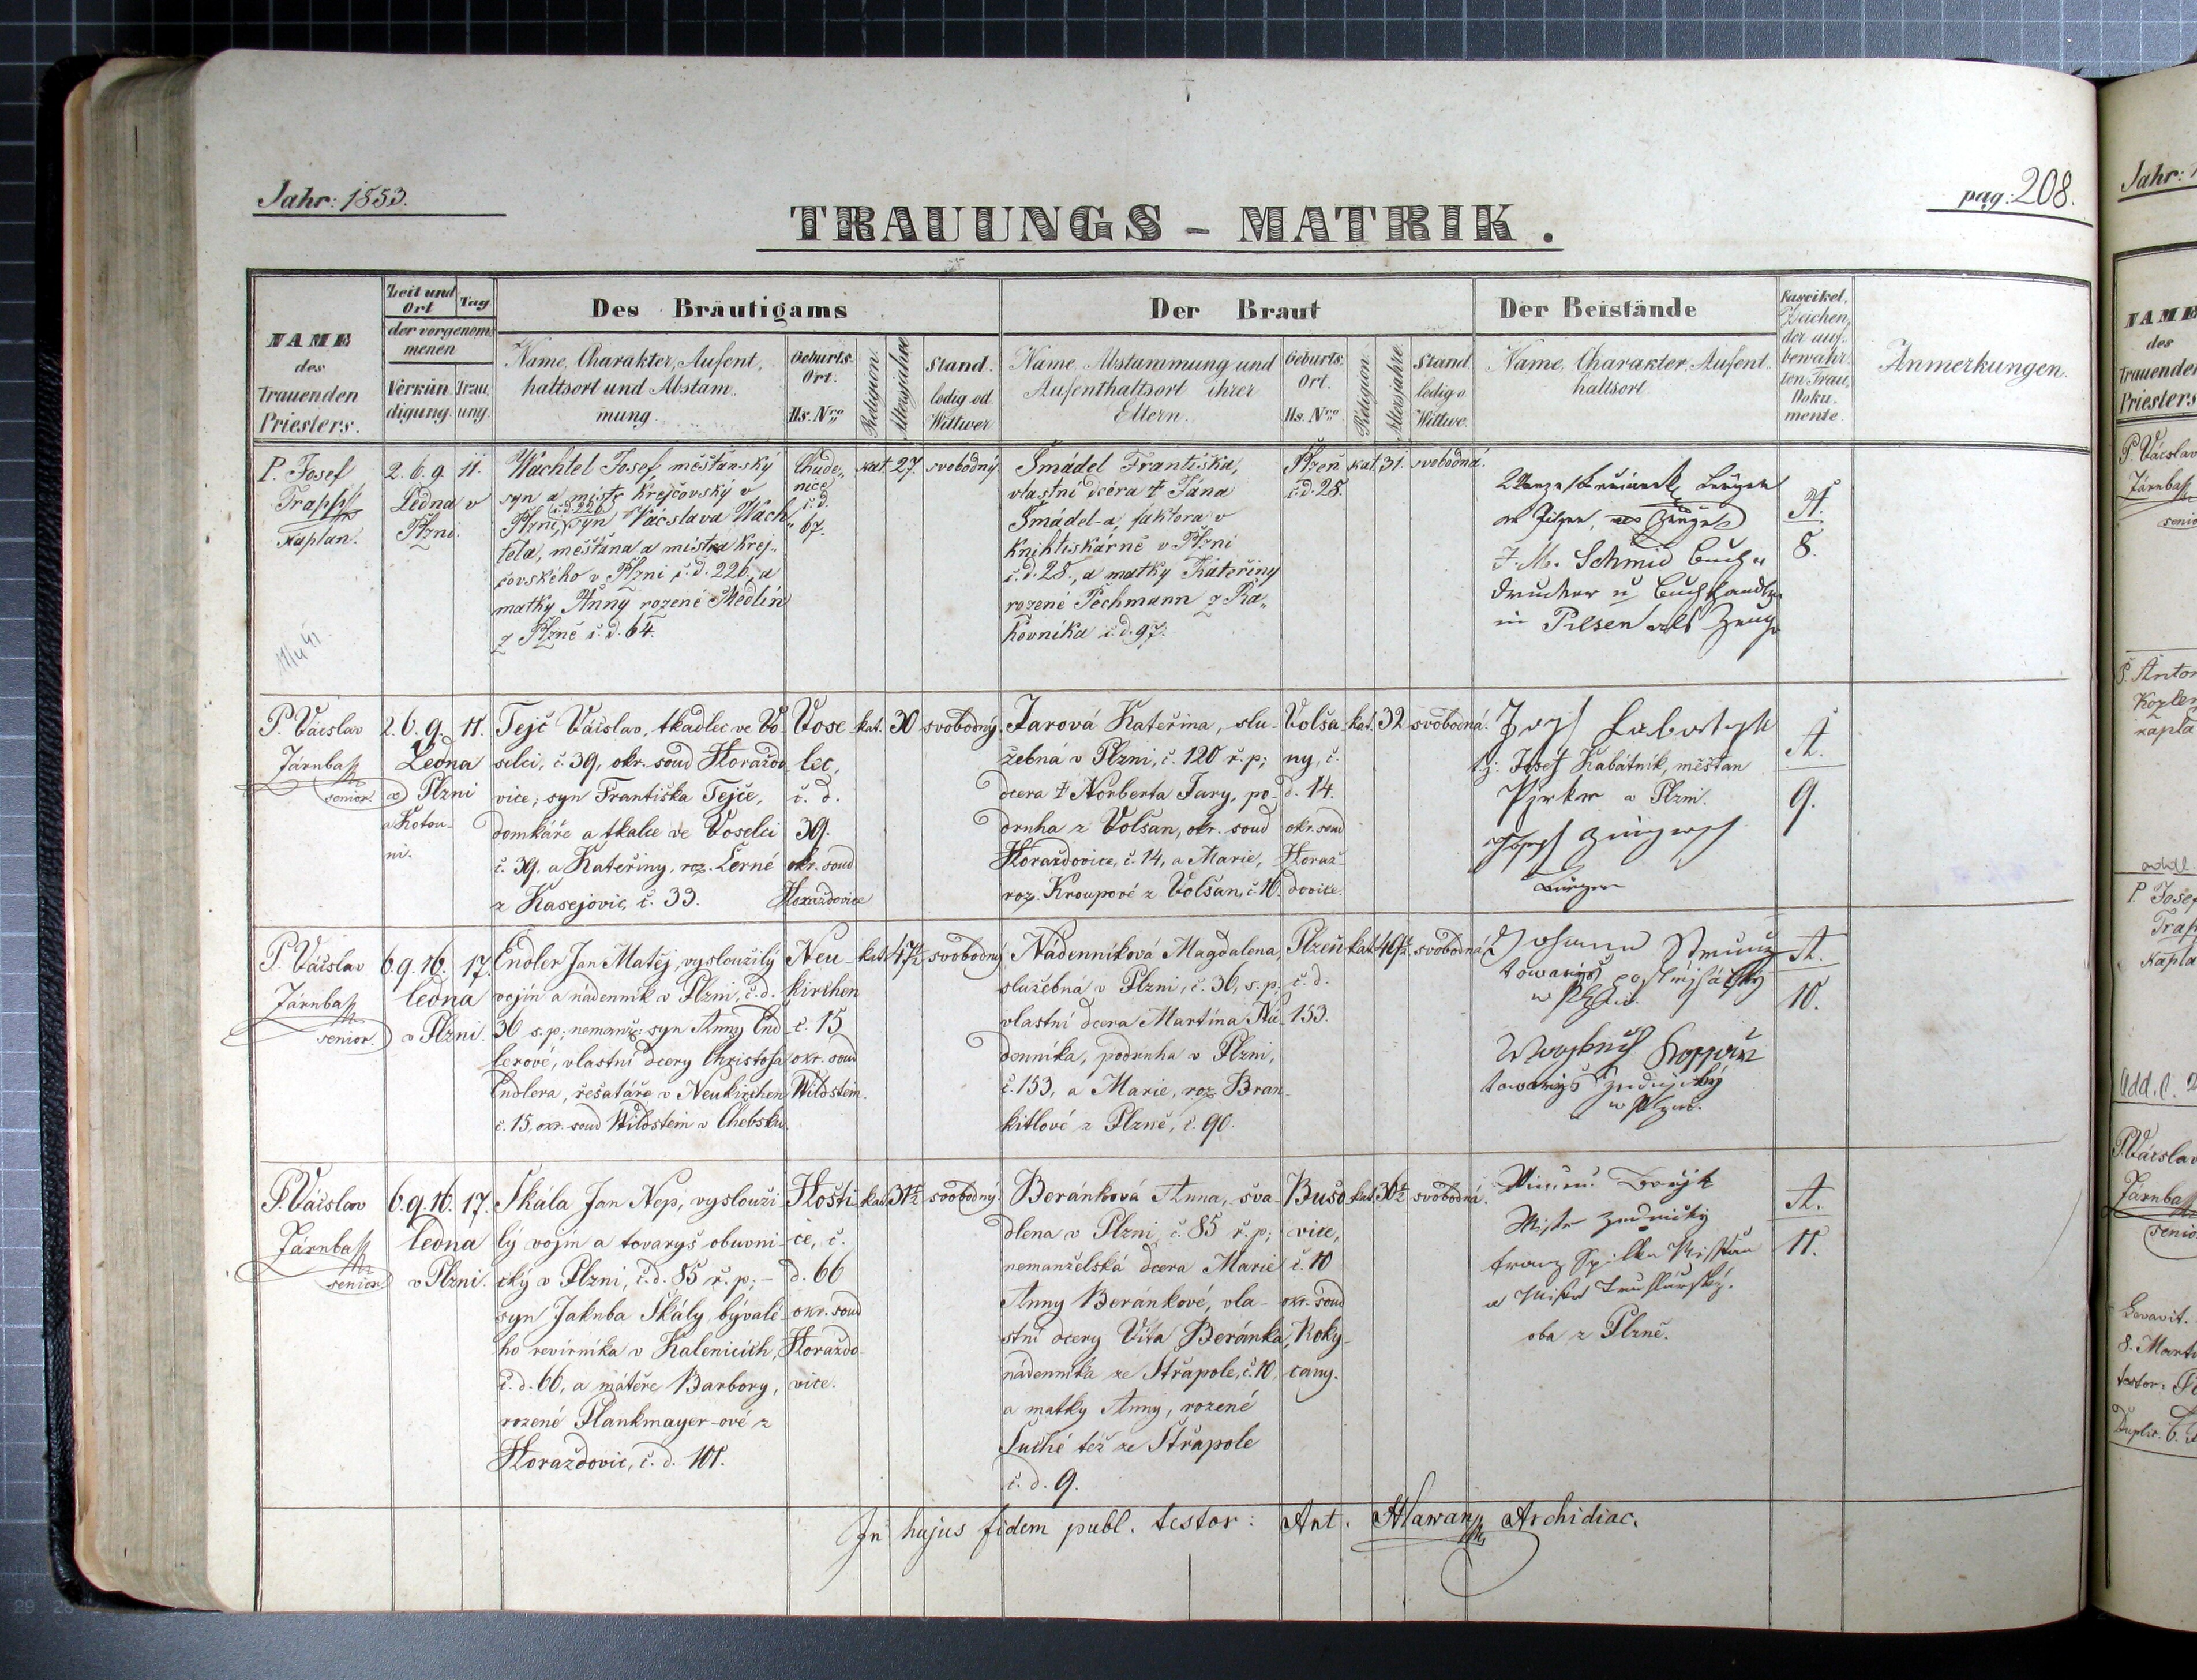 Jahr: 1853.
pag: 208.
TRAUUNGS - MATRIK.
NAME
des
Trauenden
Priesters.
Zeit und
Ort
Tag
der vorgenom-
menen
Verkün-
digung
Trau-
ung.
Des Bräutigams
Name, Charakter, Aufent-
haltsort und Abstam-
mung.
Geburts-
Ort.
Hs. Nro
Religion
Altersjahre
Stand.
ledig od.
Wittwer
Der Braut
Name, Abstammung und
Aufenthaltsort ihrer
Eltern.
Geburts-
Ort.
Hs. Nro
Religion
Altersjahre
Stand
ledig o.
Wittwe.
Der Beistände
Name, Charakter, Aufent-
haltsort.
Fascikel,
Zeichen,
der auf-
bewahr-
ten Trau,
Doku-
mente.
Anmerkungen.
P. Josef
Trapp
Kaplan.
2. 6. 9.
Ledna v
Plzni.
11.
Wachtel Josef, měšťanský
syn a mistr krejčovský v
Plzni, (č.d. 226) syn Václava Wach-
tela, měšťana a mistra krej-
čovského v Plzni č.d. 226, a
matky Anny rozené Medlín
z Plzně č.d. 64.
Chude-
nice
č.d.
67.
kat.
27.
svobodný.
Smádel Františka,
vlastní dcéra † Jána
Smádel-a, faktora v
knihtiskárně v Plzni
č.d. 28., a matky Kateřiny
rozené Pechmann z Ra-
kovníka č.d. 97.
Plzeň
č.d. 28.
kat.
31.
svobodná.
J. M. Schmid Buch-
drucker u Buchhandler
in Pilsen als Zeuge
A.
8.
P. Václav
Járnba
senior.
2. 6. 9.
Ledna
v Plzni
a Kotou-
ni.
11.
Tejč Václav, tkadlec ve Vo-
selci, č. 39, okr. soud Horaždo-
vice; syn Františka Tejče,
domkáře a tkalce ve Voselci
č. 39. a Kateřiny, roz. Černé
z Kasejovic, č. 33.
Vose-
lec,
č. d.
39.
okr. soud
Horažďovice
kat.
30
svobodný.
Jarová Kateřina, slu-
žebná v Plzni, č. 120 ř. p.;
dcera † Norberta Jary, po-
druha z Volšan, okr. soud
Horažďovice, č. 14, a Marie,
roz. Kroupové z Volšan, č. 16.
Volša-
ny, č.
d. 14.
okr. soud
Horaž-
ďovice.
kat.
32
svobodná.
t.j: Josef Kabátník, měšťan
v Plzni.
Bürger
A.
9.
P. Václav
Járnba
senior.
6. 9. 16.
ledna
v Plzni.
17.
Endler Jan Matěj, vysloužilý
vojín a nádenník v Plzni, č.d.
36 s.p.; nemanž: syn Anny End-
lerové, vlastní dcery Christofa
Endlera, řešatáře v Neukirchen
č. 15, okr. soud Wildstein v Chebsku.
Neu-
kirchen
č. 15
okr. soud
Wildstein.
kat.
47½
svobodný
Nádenníková Magdalena,
služebná v Plzni, č. 36, s.p.;
vlastní dcera Martina Ná-
denníka, podruha v Plzni,
č. 153, a Marie, roz. Bran-
kitlové z Plzně, č. 90.
Plzeň
č. d.
153.
kat.
40½
svobodná.
A.
10.
P. Václav
Járnba
senior
6. 9. 16.
ledna
v Plzni.
17.
Skála Jan Nep, vyslouži-
lý vojín a tovaryš obuvni-
cký v Plzni, č.d. 85 ř. p.; -
syn Jakuba Skály, býval-
ho revírníka v Kalenicích,
č. d. 66, a mátěře Barbory,
rozené Plankmayer-ové z
Horažďovic, č. d. 101.
Hošti-
ce, č.
d. 66
okr. soud
Horažďo-
vice.
kat.
31½
svobodný.
Beránková Anna, šva-
dlena v Plzni, č. 85 ř. p.;
nemanželská dcera Marie
Anny Beránkové, vla-
stní dcery Víta Beránka,
nádenníka ze Střapole, č. 10,
a matky Anny, rozené
Suché též ze Střapole
č. d. 9.
Bušo-
vice,
č. 10
okr. soud
Roky-
cany.
kat.
36½
svobodná.
oba z Plzně.
A.
11.
In hujus fidem publ. testor: Ant. Hlawan Archidiac.